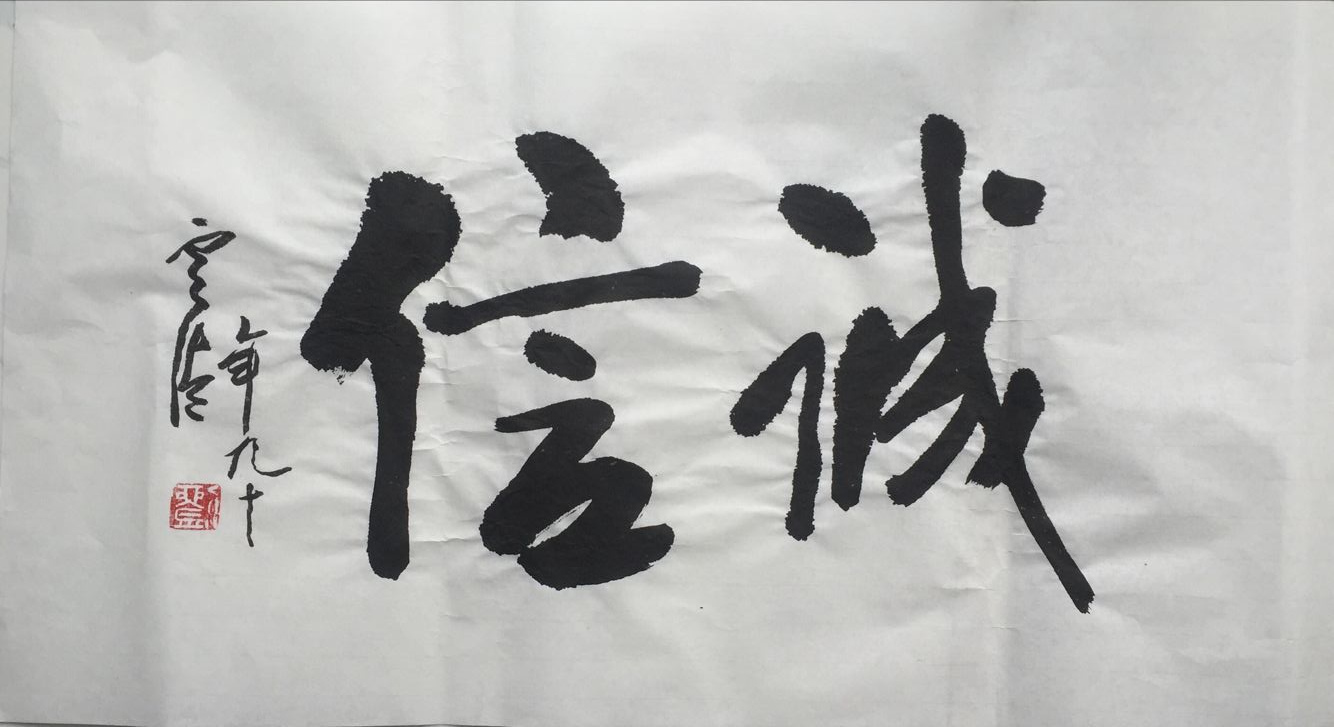 诚信
年九十
雲